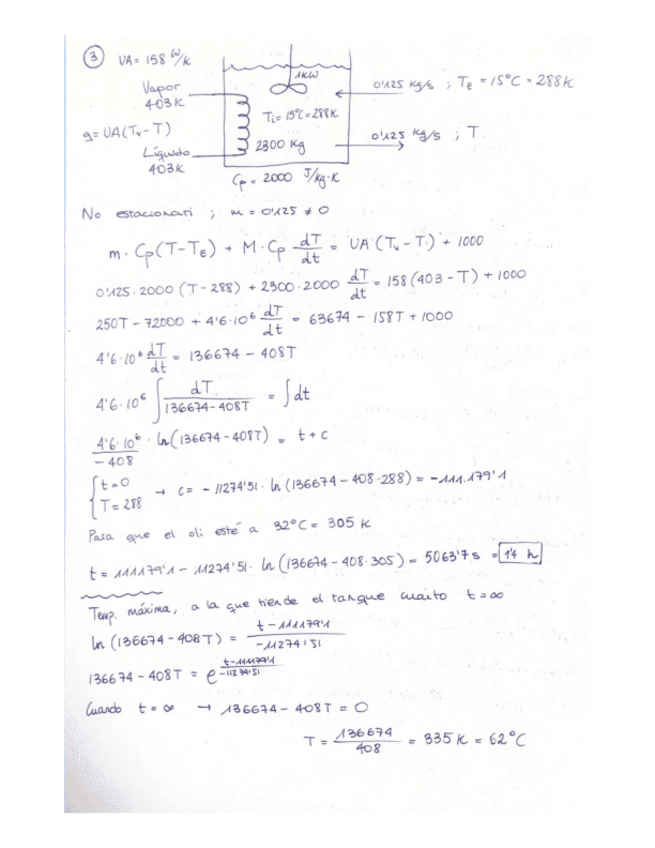 3 UA = 158 W/K
1KW
Vapor
403K
0'125 kg/s ; TE = 15°C = 288K
Ti = 15°C = 288K
q = UA(Tv - T)
2300 Kg
0'125 kg/s ; T
Líquido
403K
Cp = 2000 J/kg·K
No estacionari ; m = 0'125 ≠ 0
m · Cp(T-TE) + M · Cp dT/dt = UA (Tv - T) + 1000
0'125 · 2000 (T - 288) + 2300 · 2000 dT/dt = 158 (403 - T) + 1000
250T - 72000 + 4'6·10⁶ dT/dt = 63674 - 158T + 1000
4'6·10⁶ dT/dt = 136674 - 408T
4'6·10⁶ ∫ dT/(136674 - 408T) = ∫dt
4'6·10⁶/-408 · ln(136674 - 408T) = t + c
{t=0
T = 288 → c = - 11274'51 · ln (136674 - 408·288) = -111.179'1
Para que el oli esté a 32°C = 305 K
t = 111179'1 - 11274'51 · ln (136674 - 408·305) = 5063'7 s = 1'4 h
Temp. máxima, a la que tiende el tanque cuanto t = ∞
ln (136674 - 408T) = (t - 111179'1)/(-11274'51)
136674 - 408T = e^((t - 111179'1)/(-11274'51))
Cuando t = ∞ → 136674 - 408T = 0
T = 136674/408 = 335 K = 62°C